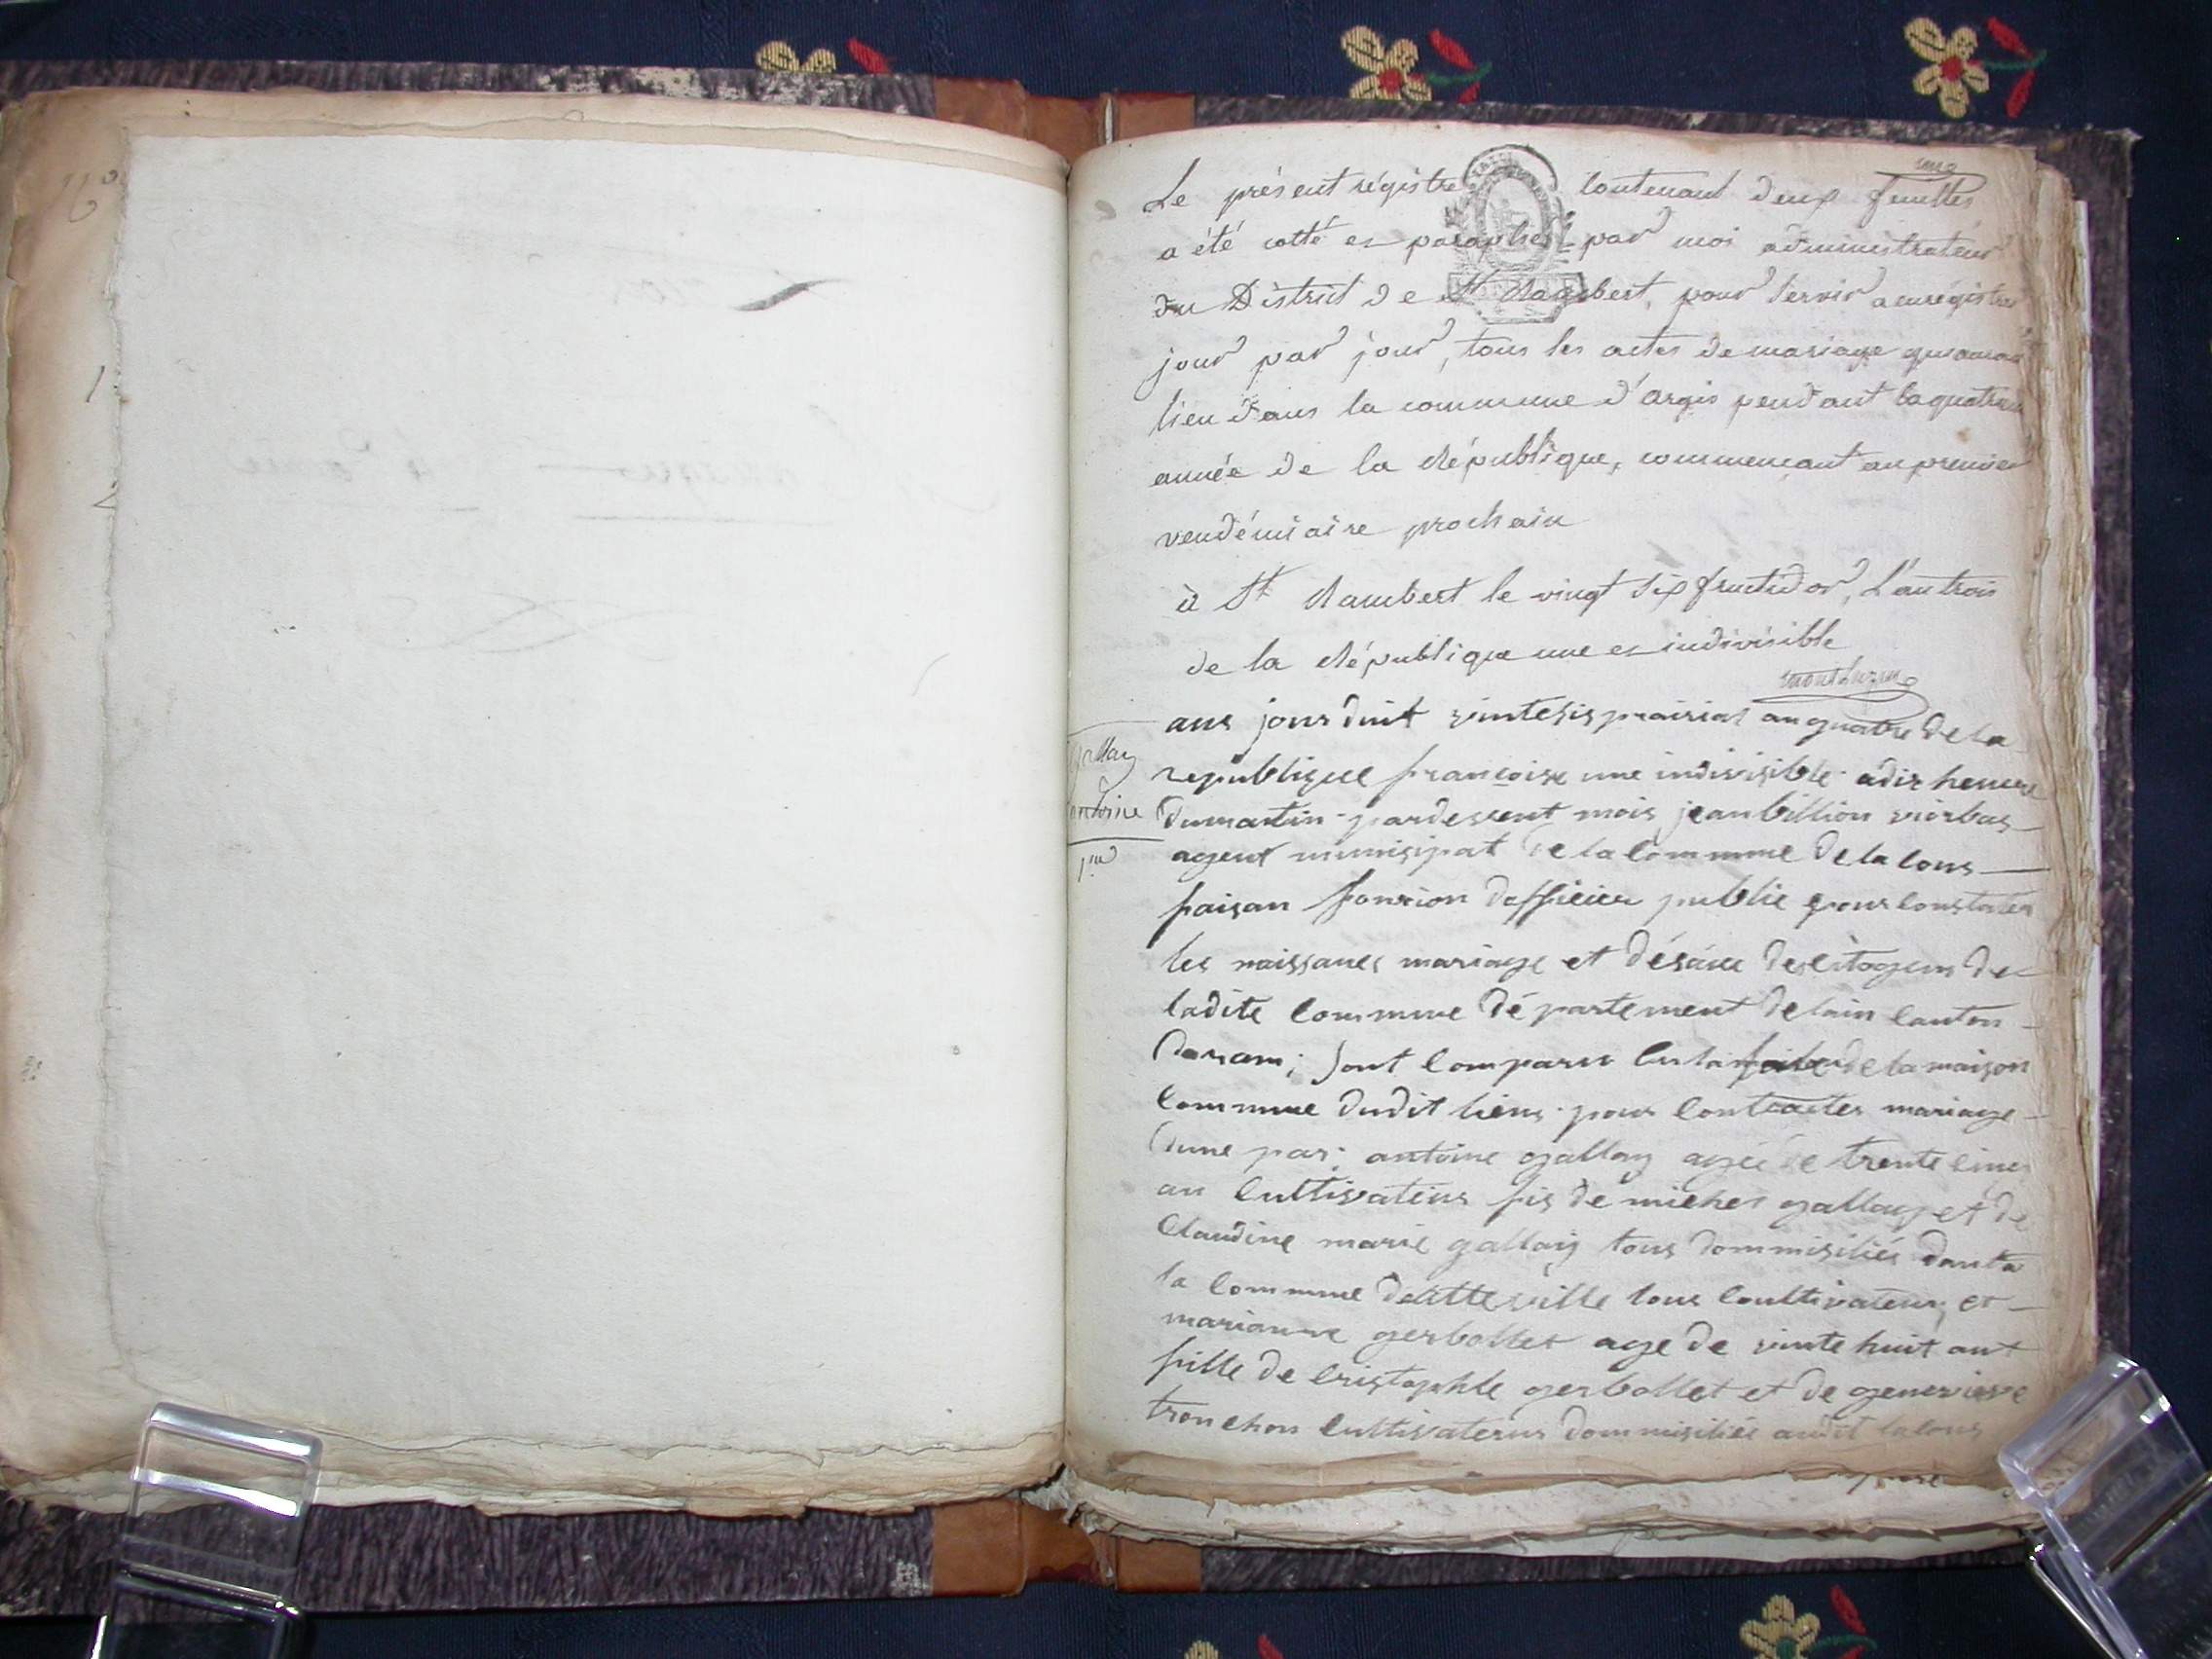 Le présent régistre contenant deux feuilles
a été cotté et paraphé par moi administrateur
du District de St Rambert, pour servir a enrégistrer
jour par jour, tous les actes de mariage qui auront
lieu dans la commune d'argis pendant la quatrieme
année de la république, commençant au premier
vendémiaire prochain
à St Rambert le vingt six fructidor, L'an trois
de la république une et indivisible
aus jourduit vintesis prairial an quatre de la
republique françoise une indivisible adix heure
dumatin pardesvent mois jean billion
agent munisipat de la commune de la cous
faisan fonsion dofficier public pour constater
les naissances mariage et désais des citogens de
ladite commune département de lain canton
darans; sont comparu de la maison
commune dudit lieus pour contracter mariage
dune par; antoine gallay agée de trente cinq
an cultivateur fis de michel gallay et de
Claudine marie gallay tous dommisiliés
la commune tous coultivateur, et
marianne gerbollet age de vinte huit ant
fille de cristophle gerbollet et de genevieve
tronchon cultivaterur dommisiliés audit lacous
gallay
antoine